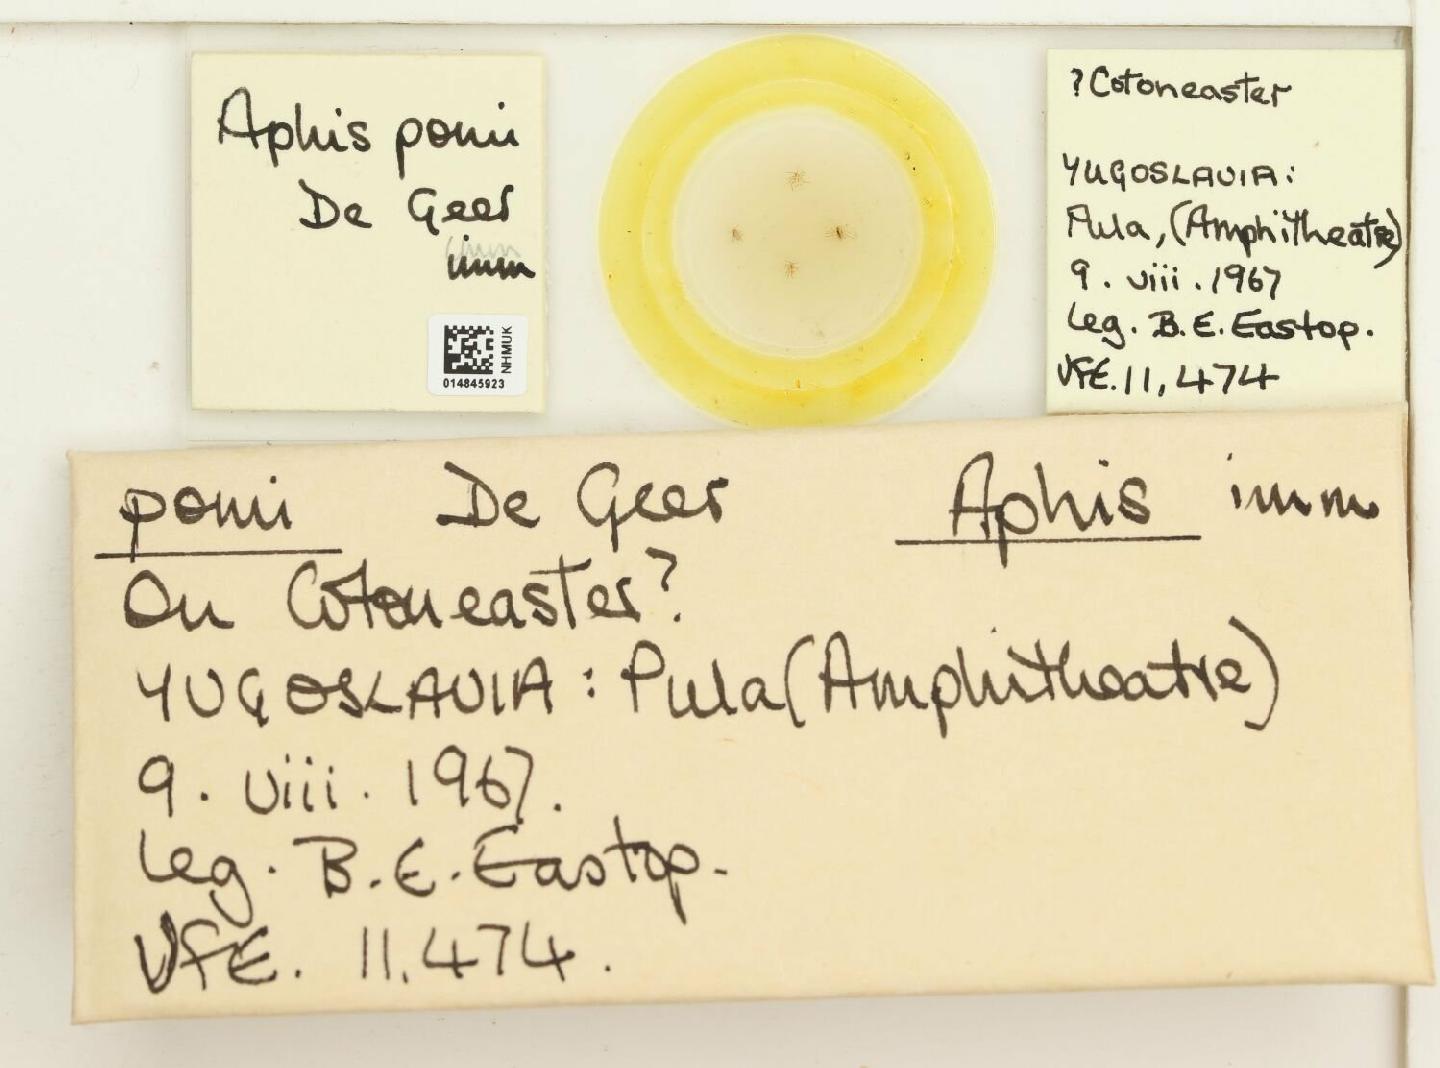 Aphis pomi
De Geer
imm
imm
NHMUK
014845923
? Cotoneaster
YUGOSLAVIA:
Pula, (Amphitheatre)
9. viii. 1967
leg. B. E. Eastop.
VFE. 11,474
pomi De Geer Aphis imm
On Cotoneaster?
YUGOSLAVIA: Pula (Amphitheatre)
9. viii. 1967.
leg. B. E. Eastop.
VFE. 11,474.